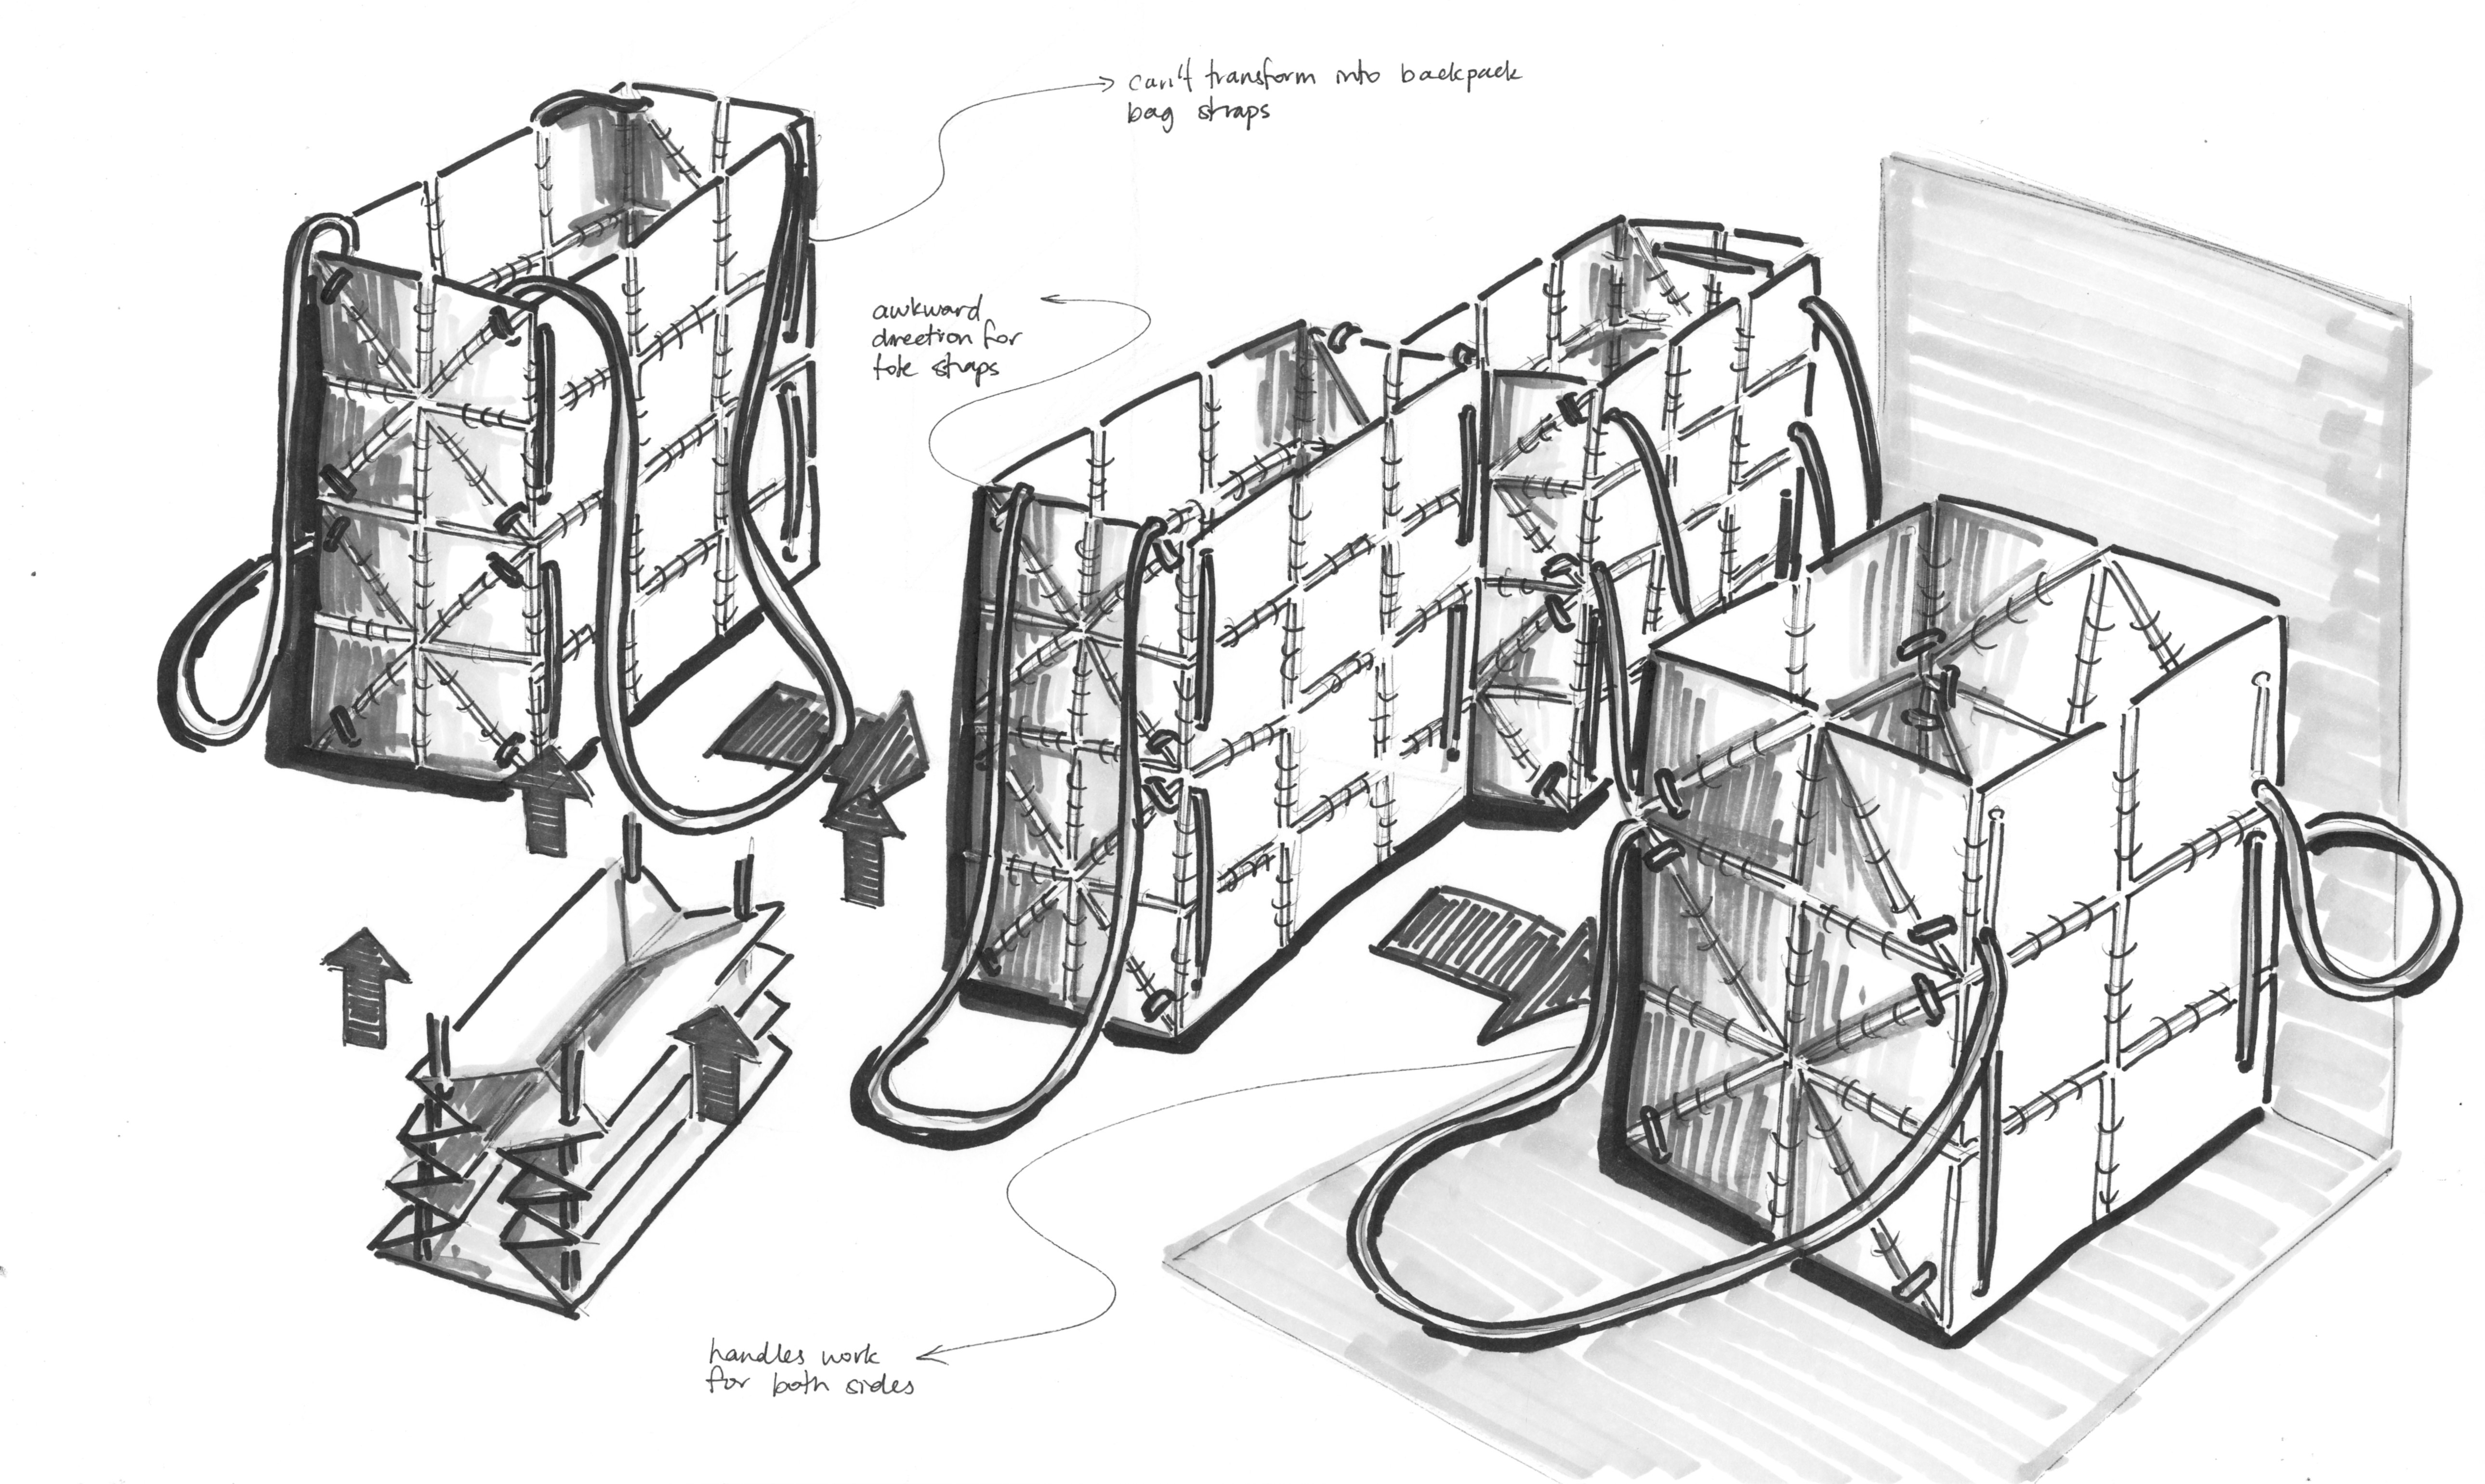 can't transform into backpack
bag straps
awkward
direction for
tote straps
handles work
for both sides